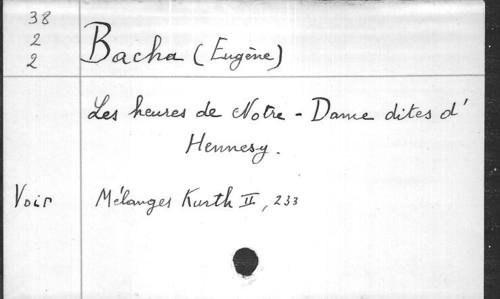 38
2
2
Bacha (Eugène)
Les heures de Notre-Dame dites d'
Hennesy.
Voir Mélanges Kurth II, 233